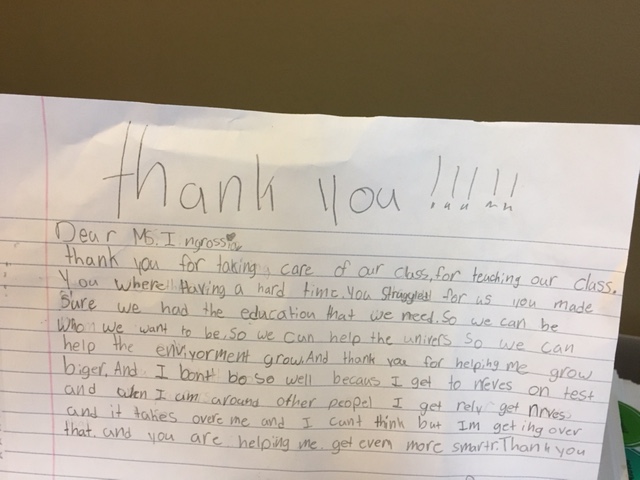 thank you !!!!!
Dear Ms. Ingrossia
thank you for taking care of our class, for teaching our class.
You where Having a hard time. You Struggled for us you made
sure we had the education that we need. So we can be
Who we want to be. So we can help the univers So we can
help the enviyorment grow. And thank you for helping me grow
biger. And I bont bo so well becaus I get to neves on test
and when I am around other peopel I get rely get nrves
and it takes overe me and I cant think but Im geting over
that. and you are helping me get even more smartr. Thank you